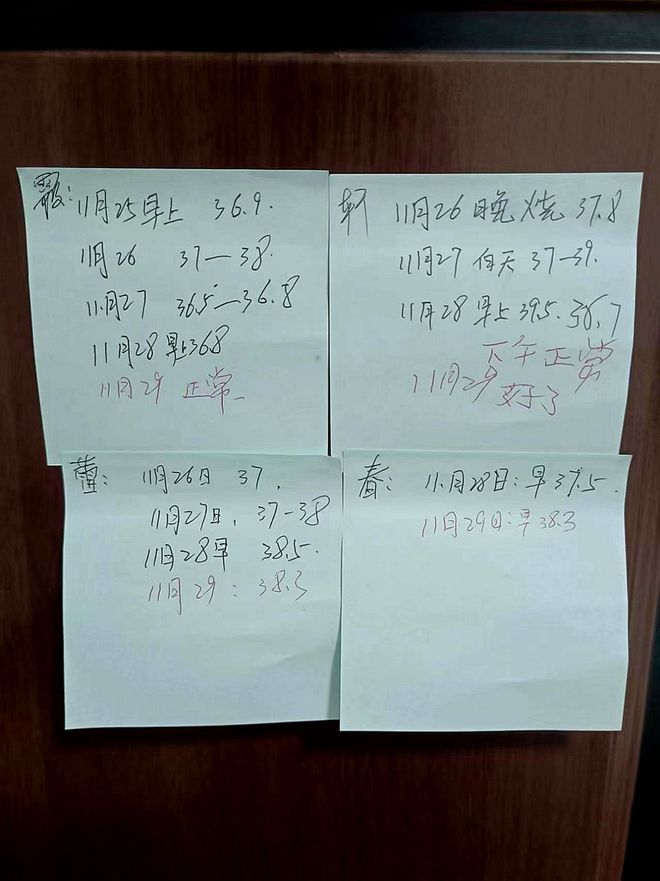 11月25早上 36.9.
11月26 37—38.
11月27 36.5—36.8
11月28早上36.8
11月29 正常
轩 11月26 晚烧 37.8
11月27 白天 37—39.
11月28 早上39.5. 38.7
下午正常
11月29 好了
蕾: 11月26日 37.
11月27日. 37-38
11月28早 38.5.
11月29: 38.3
春: 11月28日:早37.5.
11月29日:早38.3